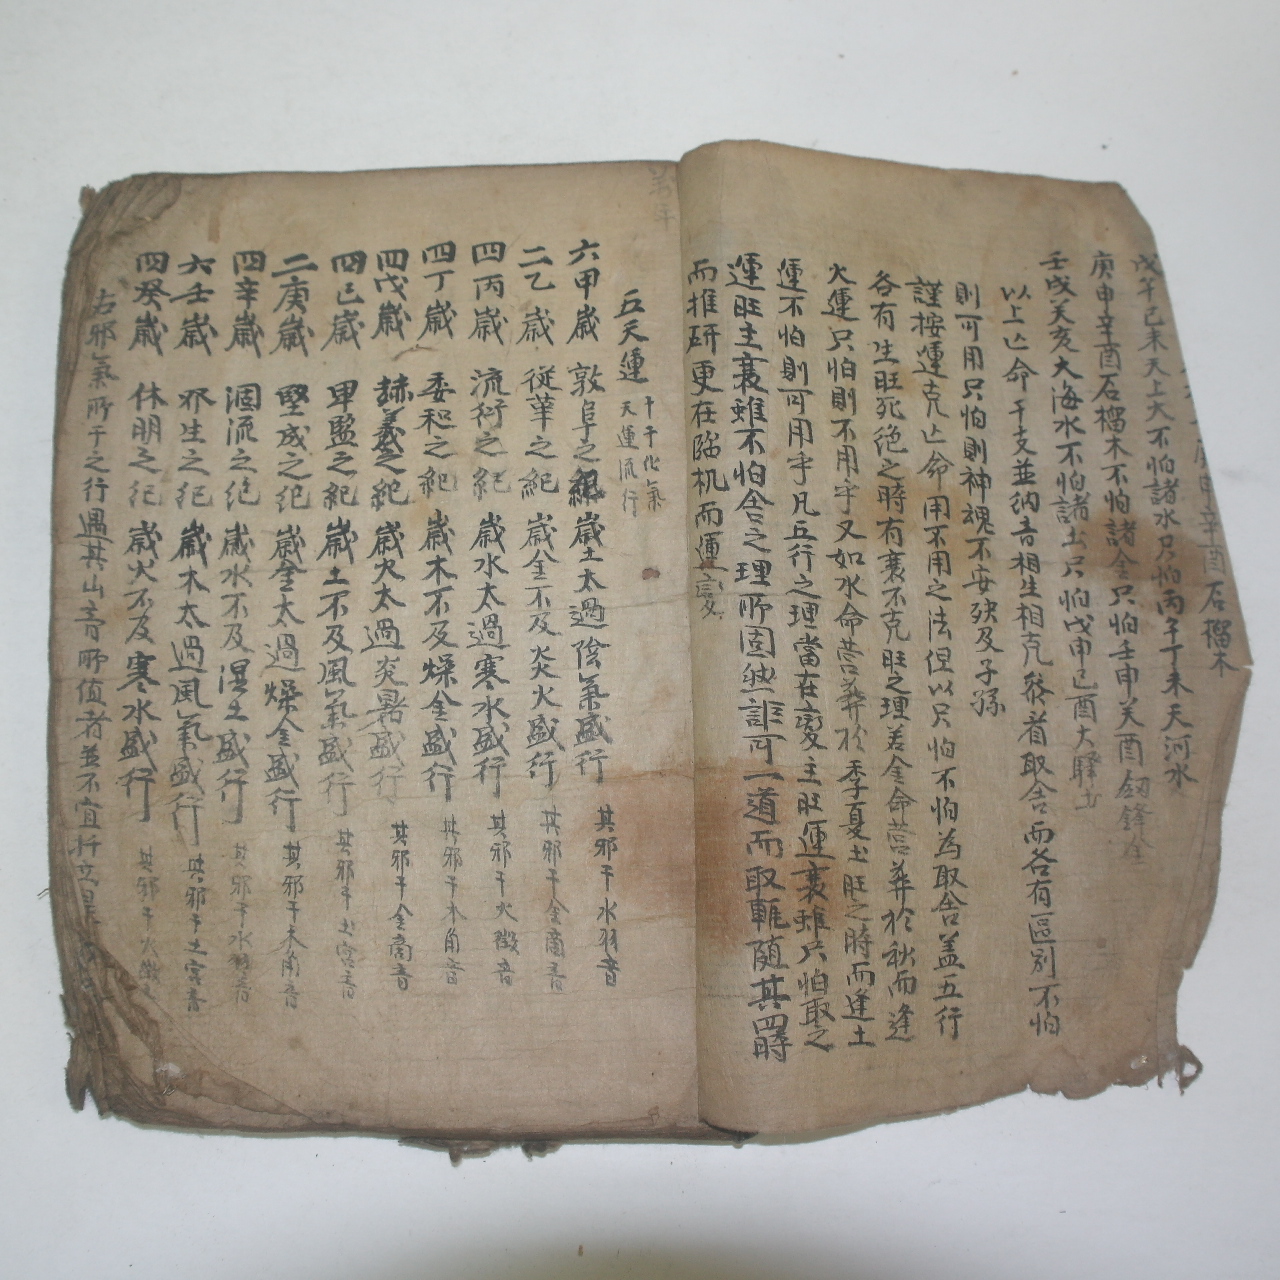 庚申辛酉石榴木
戊午己未天上火不怕諸水只怕丙午丁未天河水
庚申辛酉石榴木不怕諸金只怕壬申癸酉釼鋒金
壬戌癸亥大海水不怕諸土只怕戊申己酉大驛土
以上亡命干支並納音相生相克叅者取舍而各有區別不怕
則可用只怕則神魂不安殃及子孫
謹按運克亡命用不用之法但以只怕不怕為取舍盖五行
各有生旺死絶之時有衰不克旺之理若金命葬於秋而逢
火運只怕則不用乎又如水命葬於季夏土旺之時而逢土
運不怕則可用乎凡五行之理當在變主旺運衰雖只怕取之
運旺主衰雖不怕舍之理所固然詎可一道而取輒随其四時
而推研更在臨机而運変
五天運 十干化氣 天運流行
六甲歲 敦阜之紀 歲土太過陰氣盛行 其邪干水羽音
二乙歲 從革之紀 歲金不及炎火盛行 其邪干金商音
四丙歲 流衍之紀 歲水太過寒水盛行 其邪干火徵音
四丁歲 委和之紀 歲木不及燥金盛行 其邪干木角音
四戊歲 赫羲之紀 歲火太過炎暑盛行 其邪干金商音
四己歲 卑監之紀 歲土不及風氣盛行 其邪干土宮音
二庚歲 堅成之紀 歲金太過燥金盛行 其邪干木角音
四辛歲 涸流之紀 歲水不及濕土盛行 其邪干水羽音
六壬歲 邪生之紀 歲木太過風氣盛行 其邪干土宮音
四癸歲 休明之紀 歲火不及寒水盛行 其邪干火徵
右邪氣所干之行遇其山音所值者並不宜